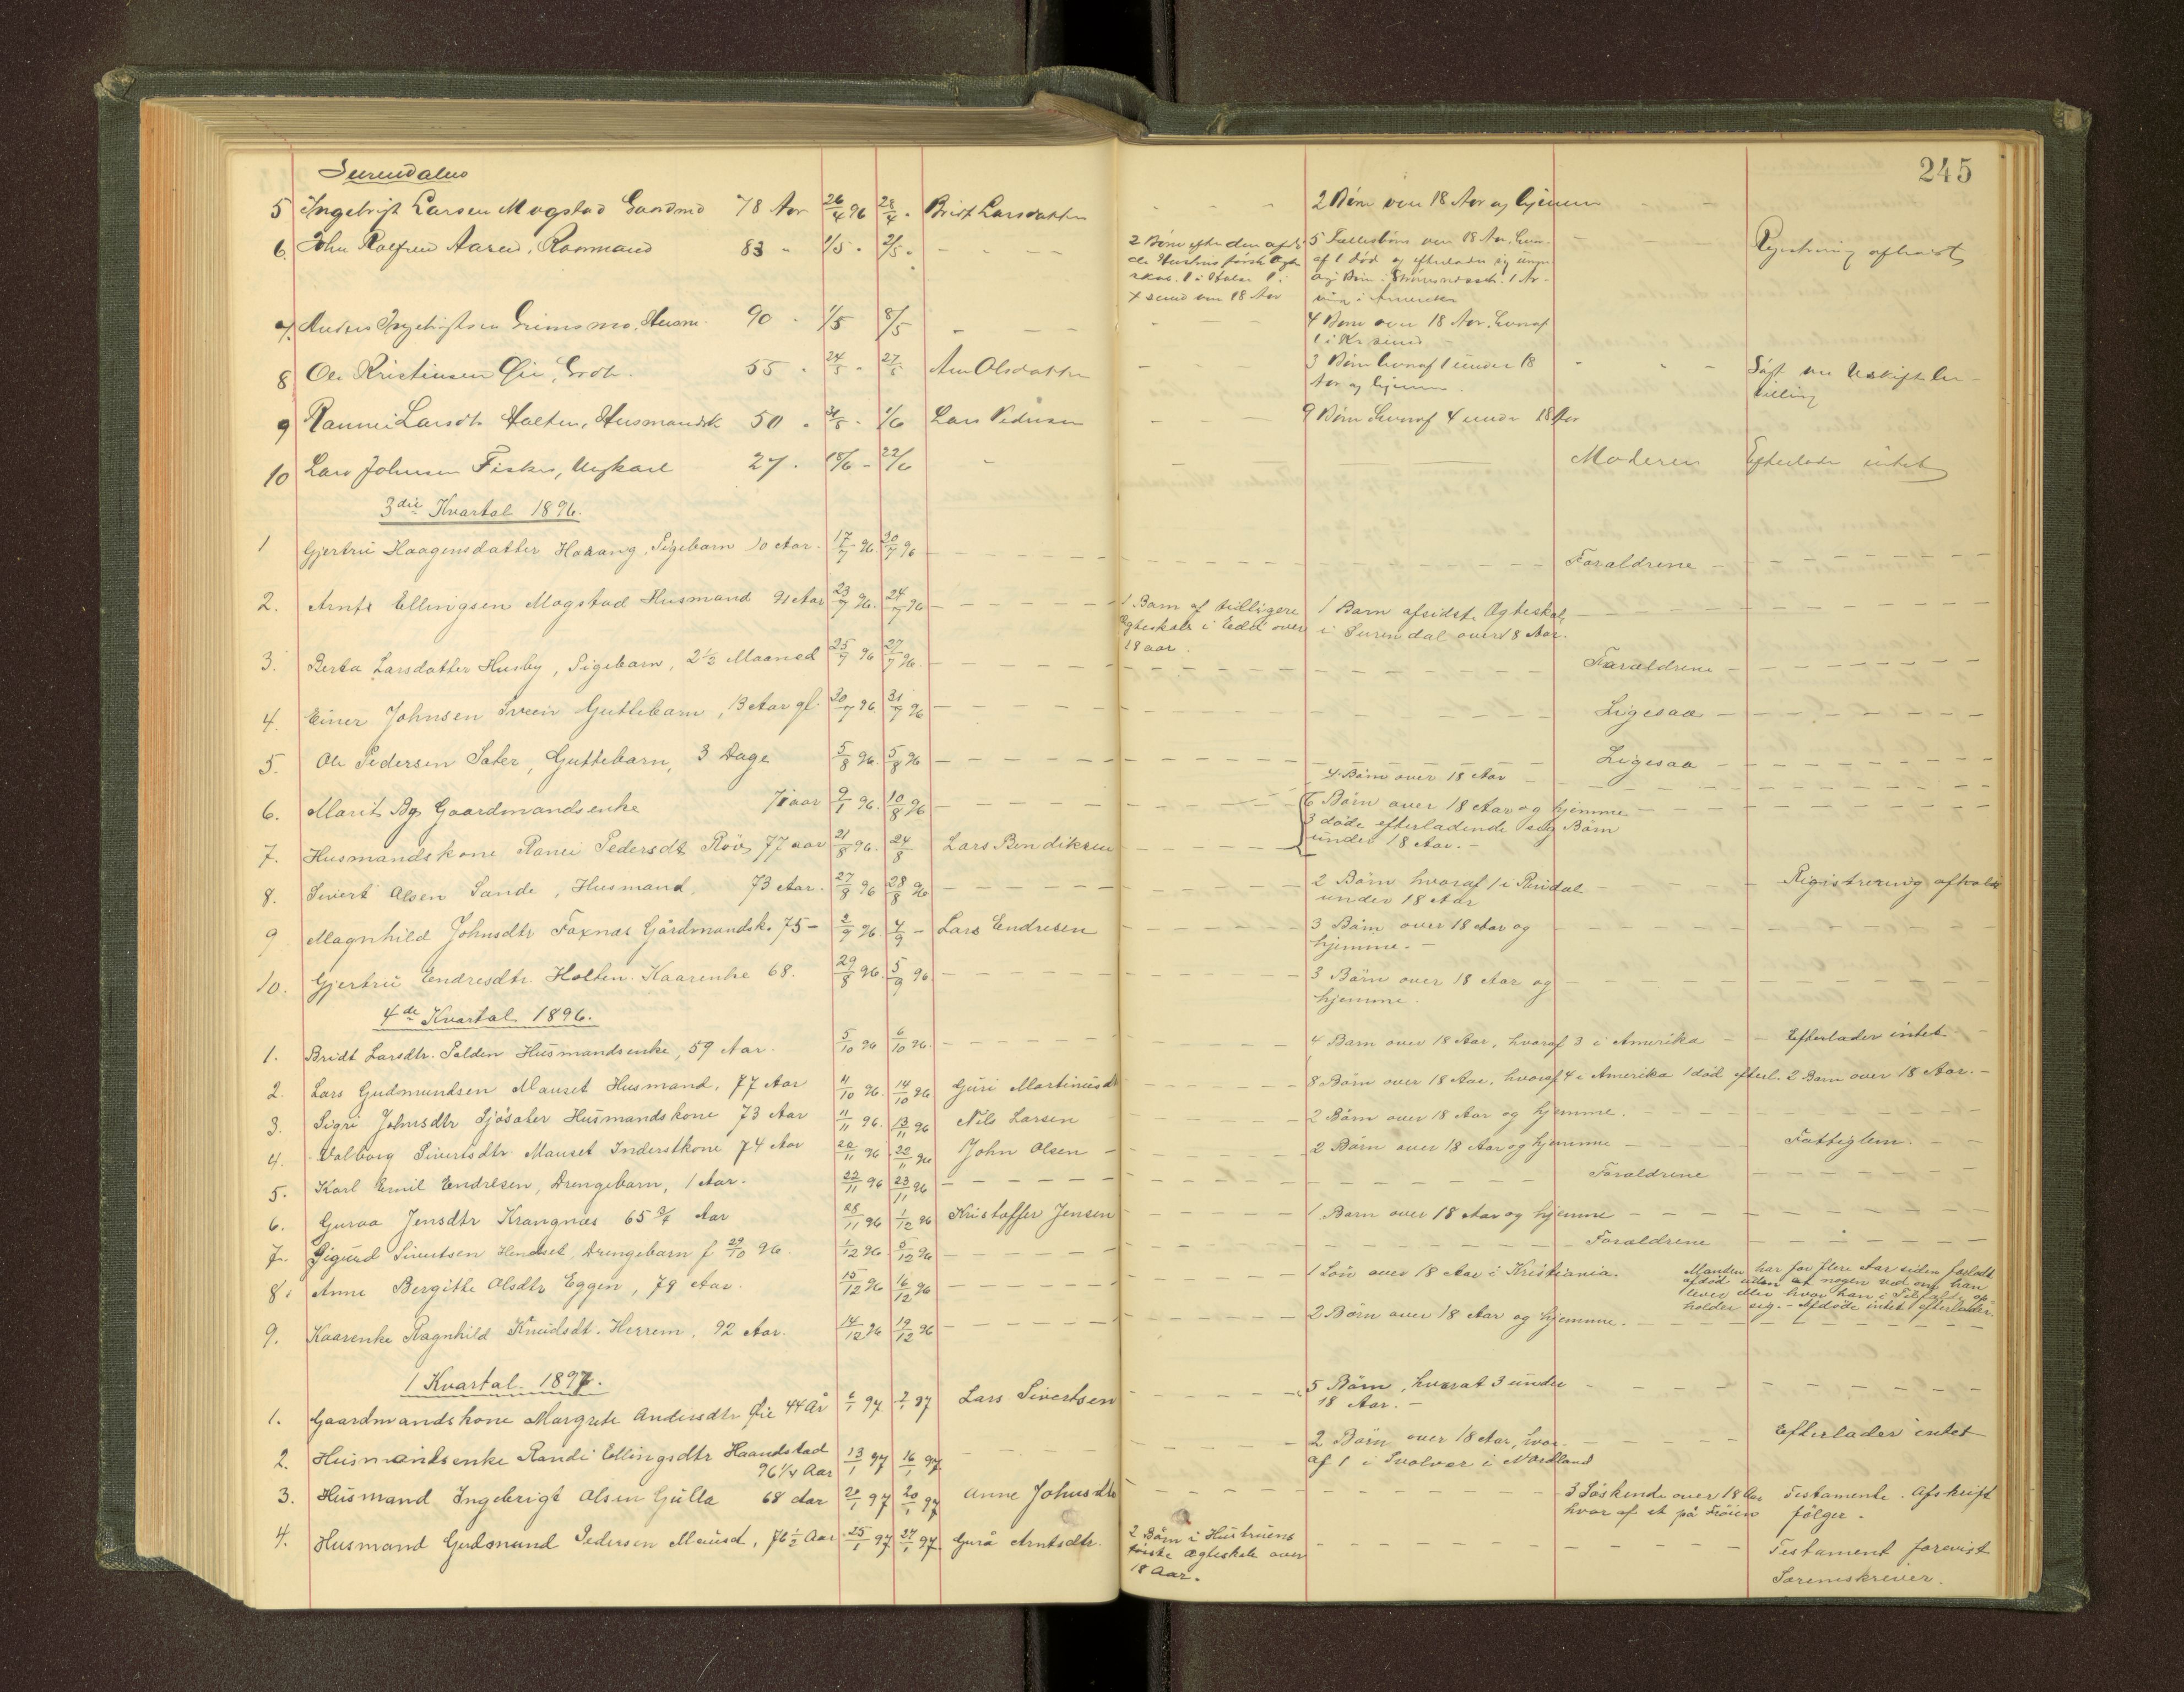 245
Surendalen
5 Ingebrigt Larsen Mogstad Gaardmd 78 Aar 26/4 96 28/4 " Brit Larsdatter - - - 2 Børn over 18 Aar og hjemme
6. John Rolfsen Aaren, Kaarmand 83 " 1/5 " 2/5 " - - - -
2 Børn efter den afdø-
de Hustrus første Ægte
skab. 1 i
sund over 18 Aar
5 Fællesbørn over 18 Aar, hvor-
af 1 død og efterlader sig
1 Ar-
ving i Amerika
Registrering afholdt
7. Anders Ingebrigtsen Grimsmo, Husm. 90 " 1/5 8/5 - - -
4 Børn over 18 Aar, hvoraf
1 i Kr sund
8 Ole Kristiansen Øie, Grdb. 55 " 24/5 " 27/5 Ane Olsdatter - - -
3 Børn hvoraf 1 under 18
Aar og hjemme.
Søgt om Uskiftbe-
villing
9 Rannei Larsdtr Halten, Husmandsk 50 " 31/5 " 1/6 Lars Pedersen - - - 9 Børn hvoraf 4 under 18 Aar
10 Lars Johnsen Fiske, Ungkarl 27 " 18/6 - 22/6 - - - Moderen Efterlader intet
3die Kvartal 1896.
1 Gjertrü Haagensdatter Harang, Pigebarn 10 Aar. 17/7 96 20/7 96 - - - Forældrene -
2. Arnt Ellingsen Mogstad Husmand 91 Aar 23/7 96. 24/7 96 - - -
1 Barn af tidligere
Ægteskab i Edø over
18 aar.
1 Barn af sidste Ægteskab
i Surendal over 18 Aar.
3. Berta Larsdatter Husby, Pigebarn, 2 1/2 Maaned 25/7 96 27/7 96. - - - Forældrene -
4. Einer Johnsen Sveen Guttebarn, 13 Aar gl. 30/7 96. 31/7 96 - - - Ligesaa -
5. Ole Pedersen Sæter, Guttebarn, 3 Dage 5/8 96. 5/8 96 - - - Ligesaa -
6. Marit Bø Gaardmandsenke 71 aar 9/1 96. 10/8 96 - - - 4 Børn over 18 Aar -
7. Husmandskone Ranei Pedersdt Röv, 77 aar 21/8 96. 24/8 Lars Bendiksen - - -
6 Börn over 18 Aar og hjemme
3 döde efterladende sig Börn
under 18 Aar. -
8. Sivert Olsen Sande, Husmand, 73 Aar. 27/8 96 28/8 96 - - -
2 Börn hvoraf 1 i Rindal
under 18 Aar
Rigistrering afholdt
9 Magnhild Johnsdtr Foxnæs Gårdmandsk. 75 - 2/9 96. 4/9 - Lars Endresen - - -
3 Börn over 18 Aar og
hjemme. -
10. Gjertrü Endresdtr. Holten. Kaarenke 68. 29/8 96. 5/9 96. - - -
3 Börn over 18 Aar og
hjemme.
4de Kvartal 1896.
1. Bridt Larsdtr. Polden Husmandsenke, 59 Aar. 5/10 96 6/10 96. - - - 4 Barn over 18 Aar, hvoraf 3 i Amerika - - Efterlader intet.
2. Lars Gudmundsen Mauset Husmand, 77 Aar 11/10 96. 14/10 96 Guri Martinusdt 8 Börn over 18 Aar, hvoraf 4 i Amerika 1 död efterl. 2 Barn over 18 Aar. -
3. Sigri Johnsdtr Sjösæter Husmandskone 73 Aar 11/11 96. 13/11 96 Nils Larsen 2 Börn over 18 Aar og hjemme.
4. Valborg Sivertsdtr Mauset Inderstkone 74 Aar 20/11 96 22/11 96 John Olsen - 2 Börn over 18 Aar og hjemme Fattiglem. -
5. Karl Emil Endresen, Drengebarn, 1 Aar. 22/11 96 23/11 96 - - - Forældrene
6. Guroa Jensdtr Krangnæs 65 3/4 Aar 28/11 96 1/12 96 Kristoffer Jensen - - - 1 Barn over 18 Aar og hjemme
7. Sigurd Sivertsen Hendset, Drengebarn f 29/10 96 1/12 96 5/12 96 - - - Forældrene
8. Anne Bergitte Olsdtr Eggen, 79 Aar. 15/12 96 16/12 96 - - - 1 Sön over 18 Aar i Kristiania.
Manden har for flere Aar siden forladt
afdød uden at nogen ved om han
lever eller hvor han i Tilfælde op-
holder sig. - Afdöde intet efterlader.
9. Kaarenke Ragnhild Knudsdt. Herrem, 92 Aar. 14/12 96 19/12 96 - - - 2 Börn over 18 Aar og hjemme.
1 Kvartal 1897.
1. Gaardmandskone Margrete Andersdtr Øie 44 År 6/1 97 7/1 97 Lars Sivertsen - - -
5 Börn, hvoraf 3 under
18 Aar. -
2. Husmandsenke Randi Ellingsdtr Haandstad
96 1/4 Aar 13/1 97 16/1 97 - - -
2 Börn over 18 Aar, hvor-
af 1 i Svolvær i Nordland
Efterlader intet
3. Husmand Ingebrigt Olsen Gulla 68 Aar 20/1 97 20/1 97 Anne Johnsdtr - - -
3 Söskende over 18 Aar
hvor af et på Fröien
Testamente. Afskrift
følger.
4. Husmand Gudmund Pedersen Mauset, 76 1/2 Aar 25/1 97 27/1 97. Gurå Arntsdtr.
2 Börn i Hustruens
første Ægteskab over
18 Aar.
Testament forevist
Sorenskriver.